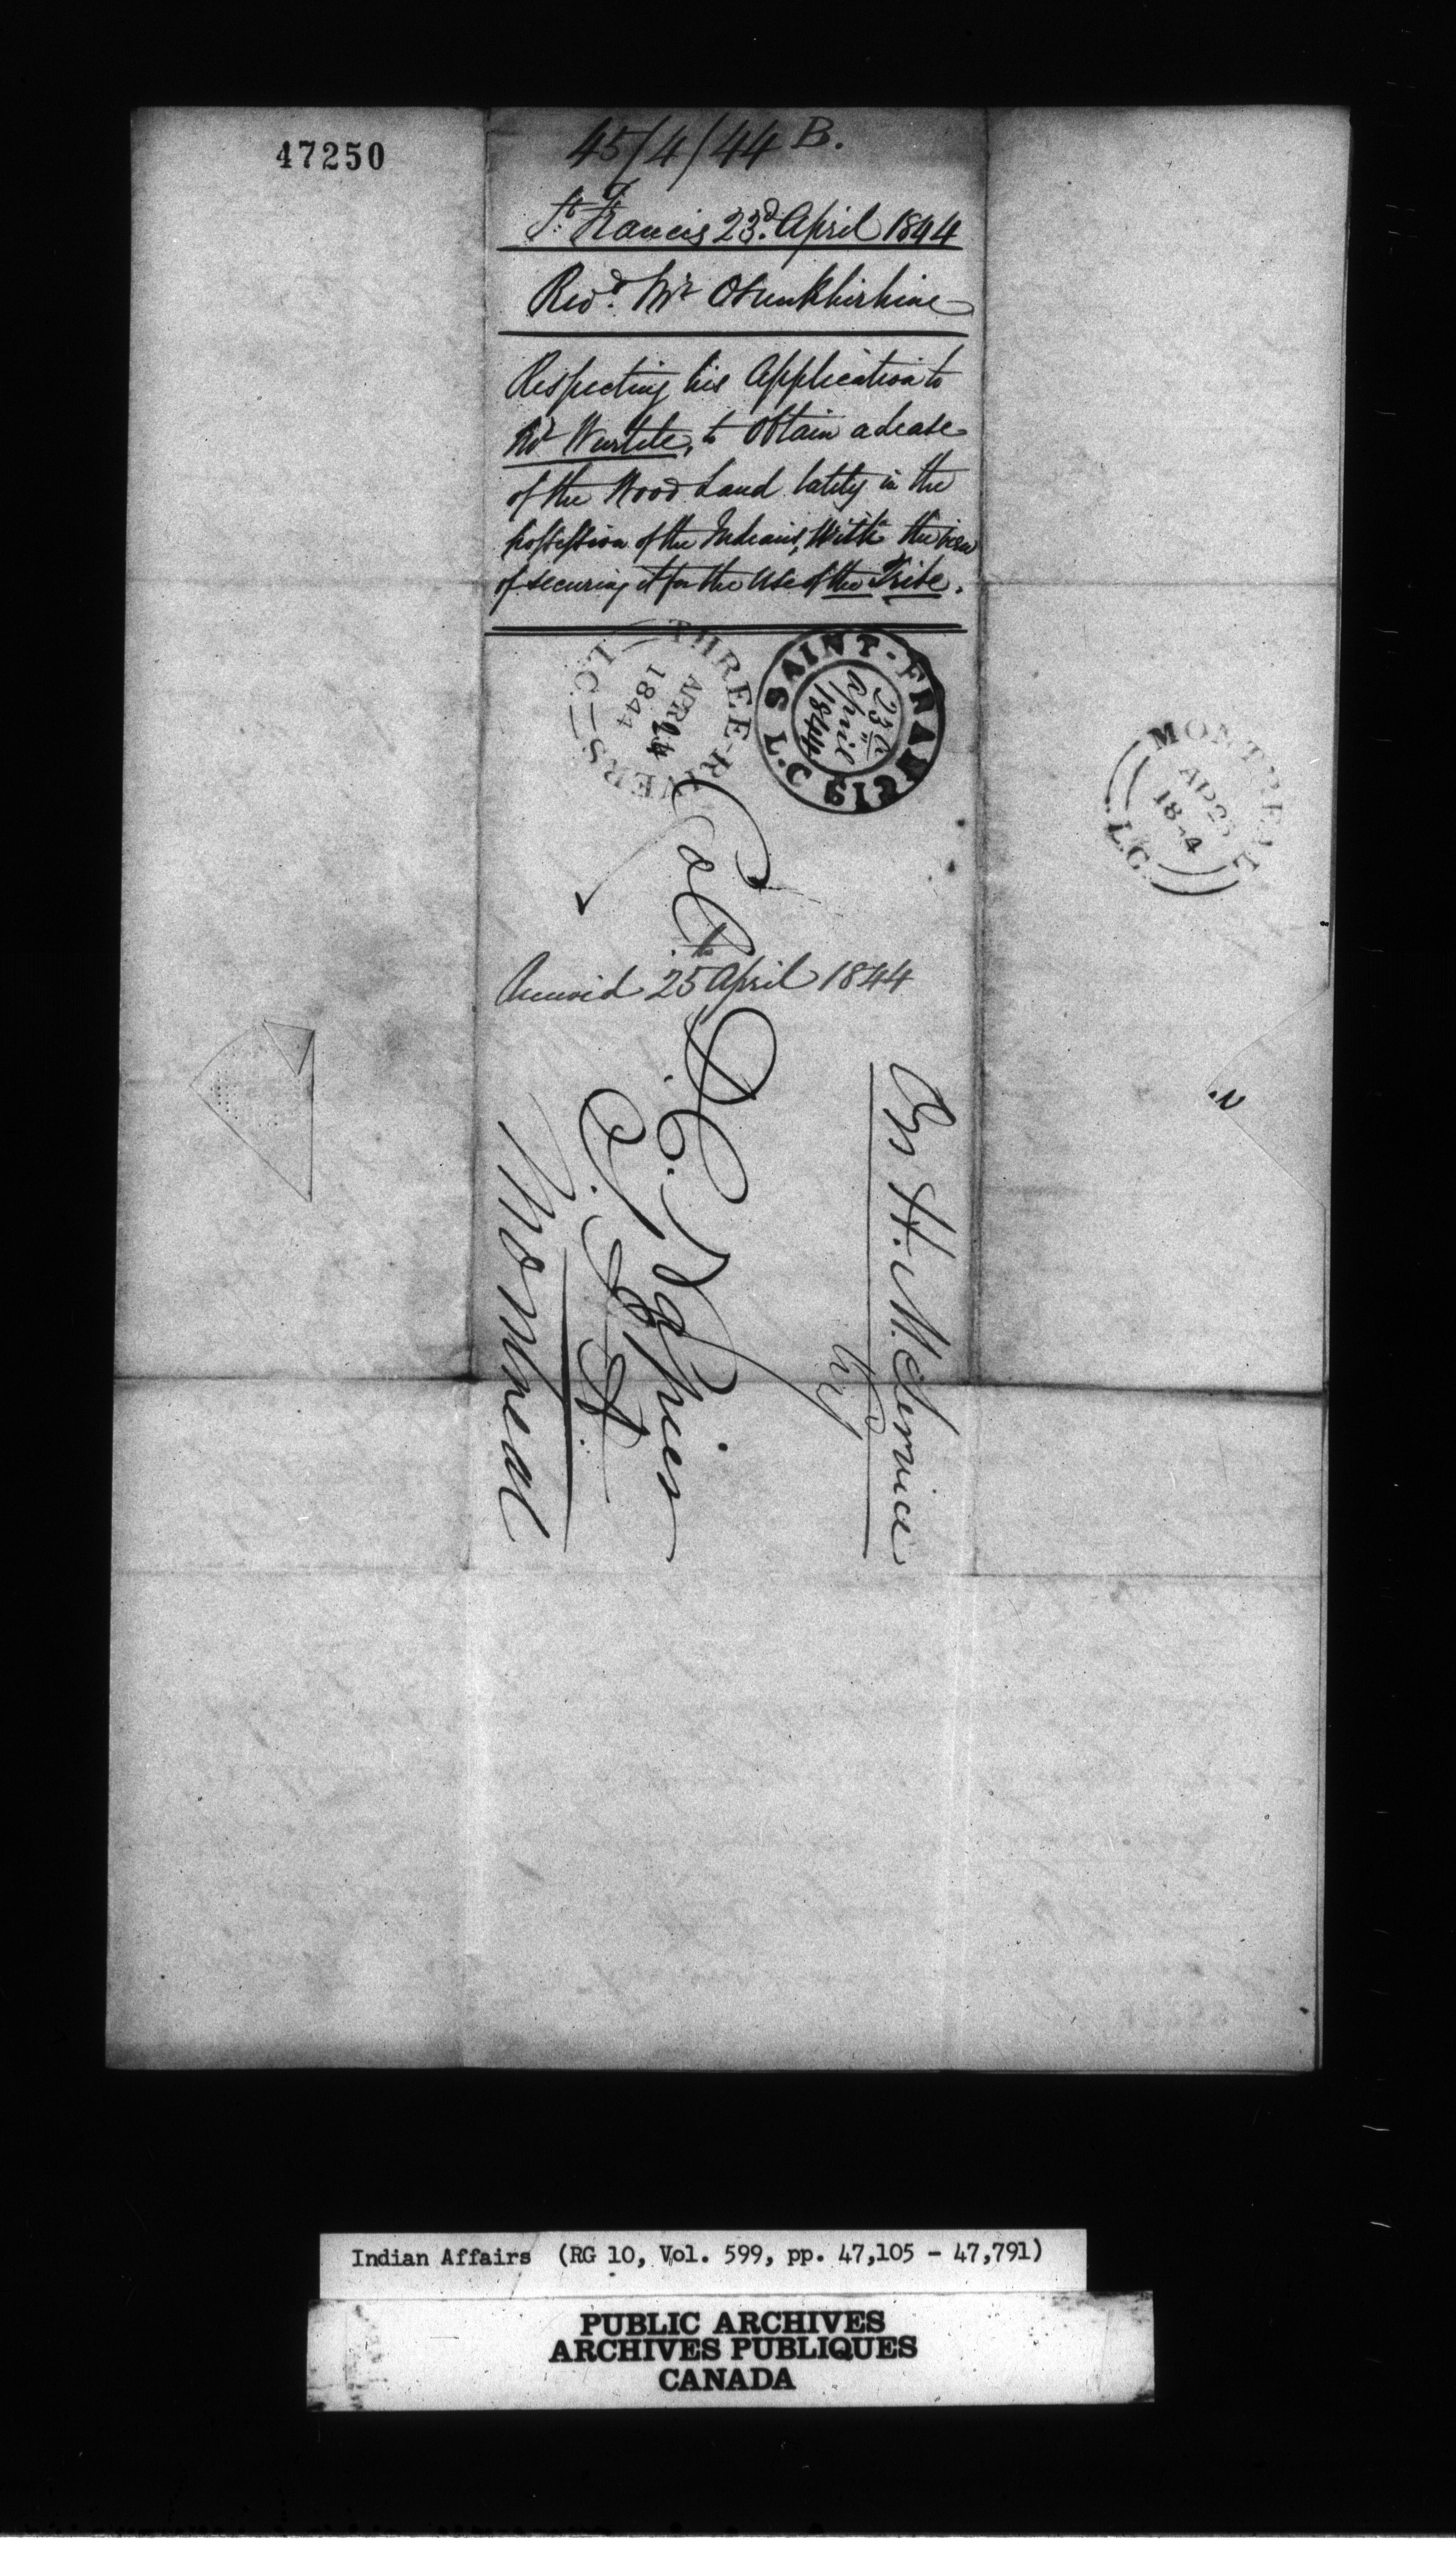 47250
45/4/44 B.
St. Francis 23d. April 1844
Revd. Mr Osunkhirhine
Respecting his Application to
Mr Wurtele, to Obtain a Lease
of the Wood Land lately in the
possession of the Indians, With the view
of securing it for the Use of the Tribe.
THREE-RIVERS L.C.
APR 24
1844
SAINT-FRANCIS L.C
23d
April
1844
MONTREAL L.C.
AP 25
1844
Received 25th April 1844
On H. M. Service
Col. D. C. Napier
Montreal
Indian Affairs (RG 10, Vol. 599, pp. 47,105 - 47,791)
PUBLIC ARCHIVES
ARCHIVES PUBLIQUES
CANADA